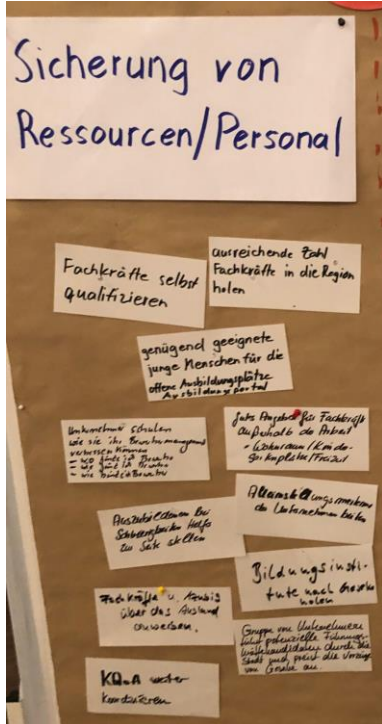 Sicherung von
Ressourcen/Personal
Fachkräfte selbst
qualifizieren
ausreichende Zahl
Fachkräfte in die Region
holen
genügend geeignete
junge Menschen für die
offene Ausbildungsplätze
Ausbildungsportal
Unternehmen schulen
wie sie ihr Bewerbermanagement
verbessern können
- wo finde ich Bewerber
- wie finde ich Bewerber
- wie Bewerber
gute Angebote für Fachkräfte
außerhalb der Arbeit
- Wohnraum/Kinder-
gartenplätze/Freizeit
Auszubildenden bei
Schwierigkeiten Hilfe
zur Seite stellen
Alleinstellungsmerkmale
der Unternehmen
Bildungsinsti-
tute nach
holen
Fachkräfte u. Azubis
über das Ausland
anwerben.
Gruppe von Unternehmern
führt potenzielle Führungs-
durch die
Stadt und preist die Vorzüge
von an.
weiter